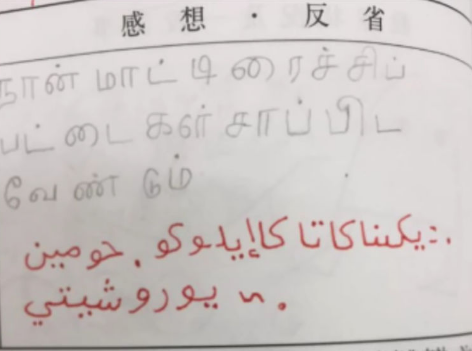 感想・反省
நான் மாட்டிறைச்சிப்
பட்டைகள் சாப்பிட
வேண்டும்
يكيناكاتا كاإيدوكو. حومين
يوروشيتي